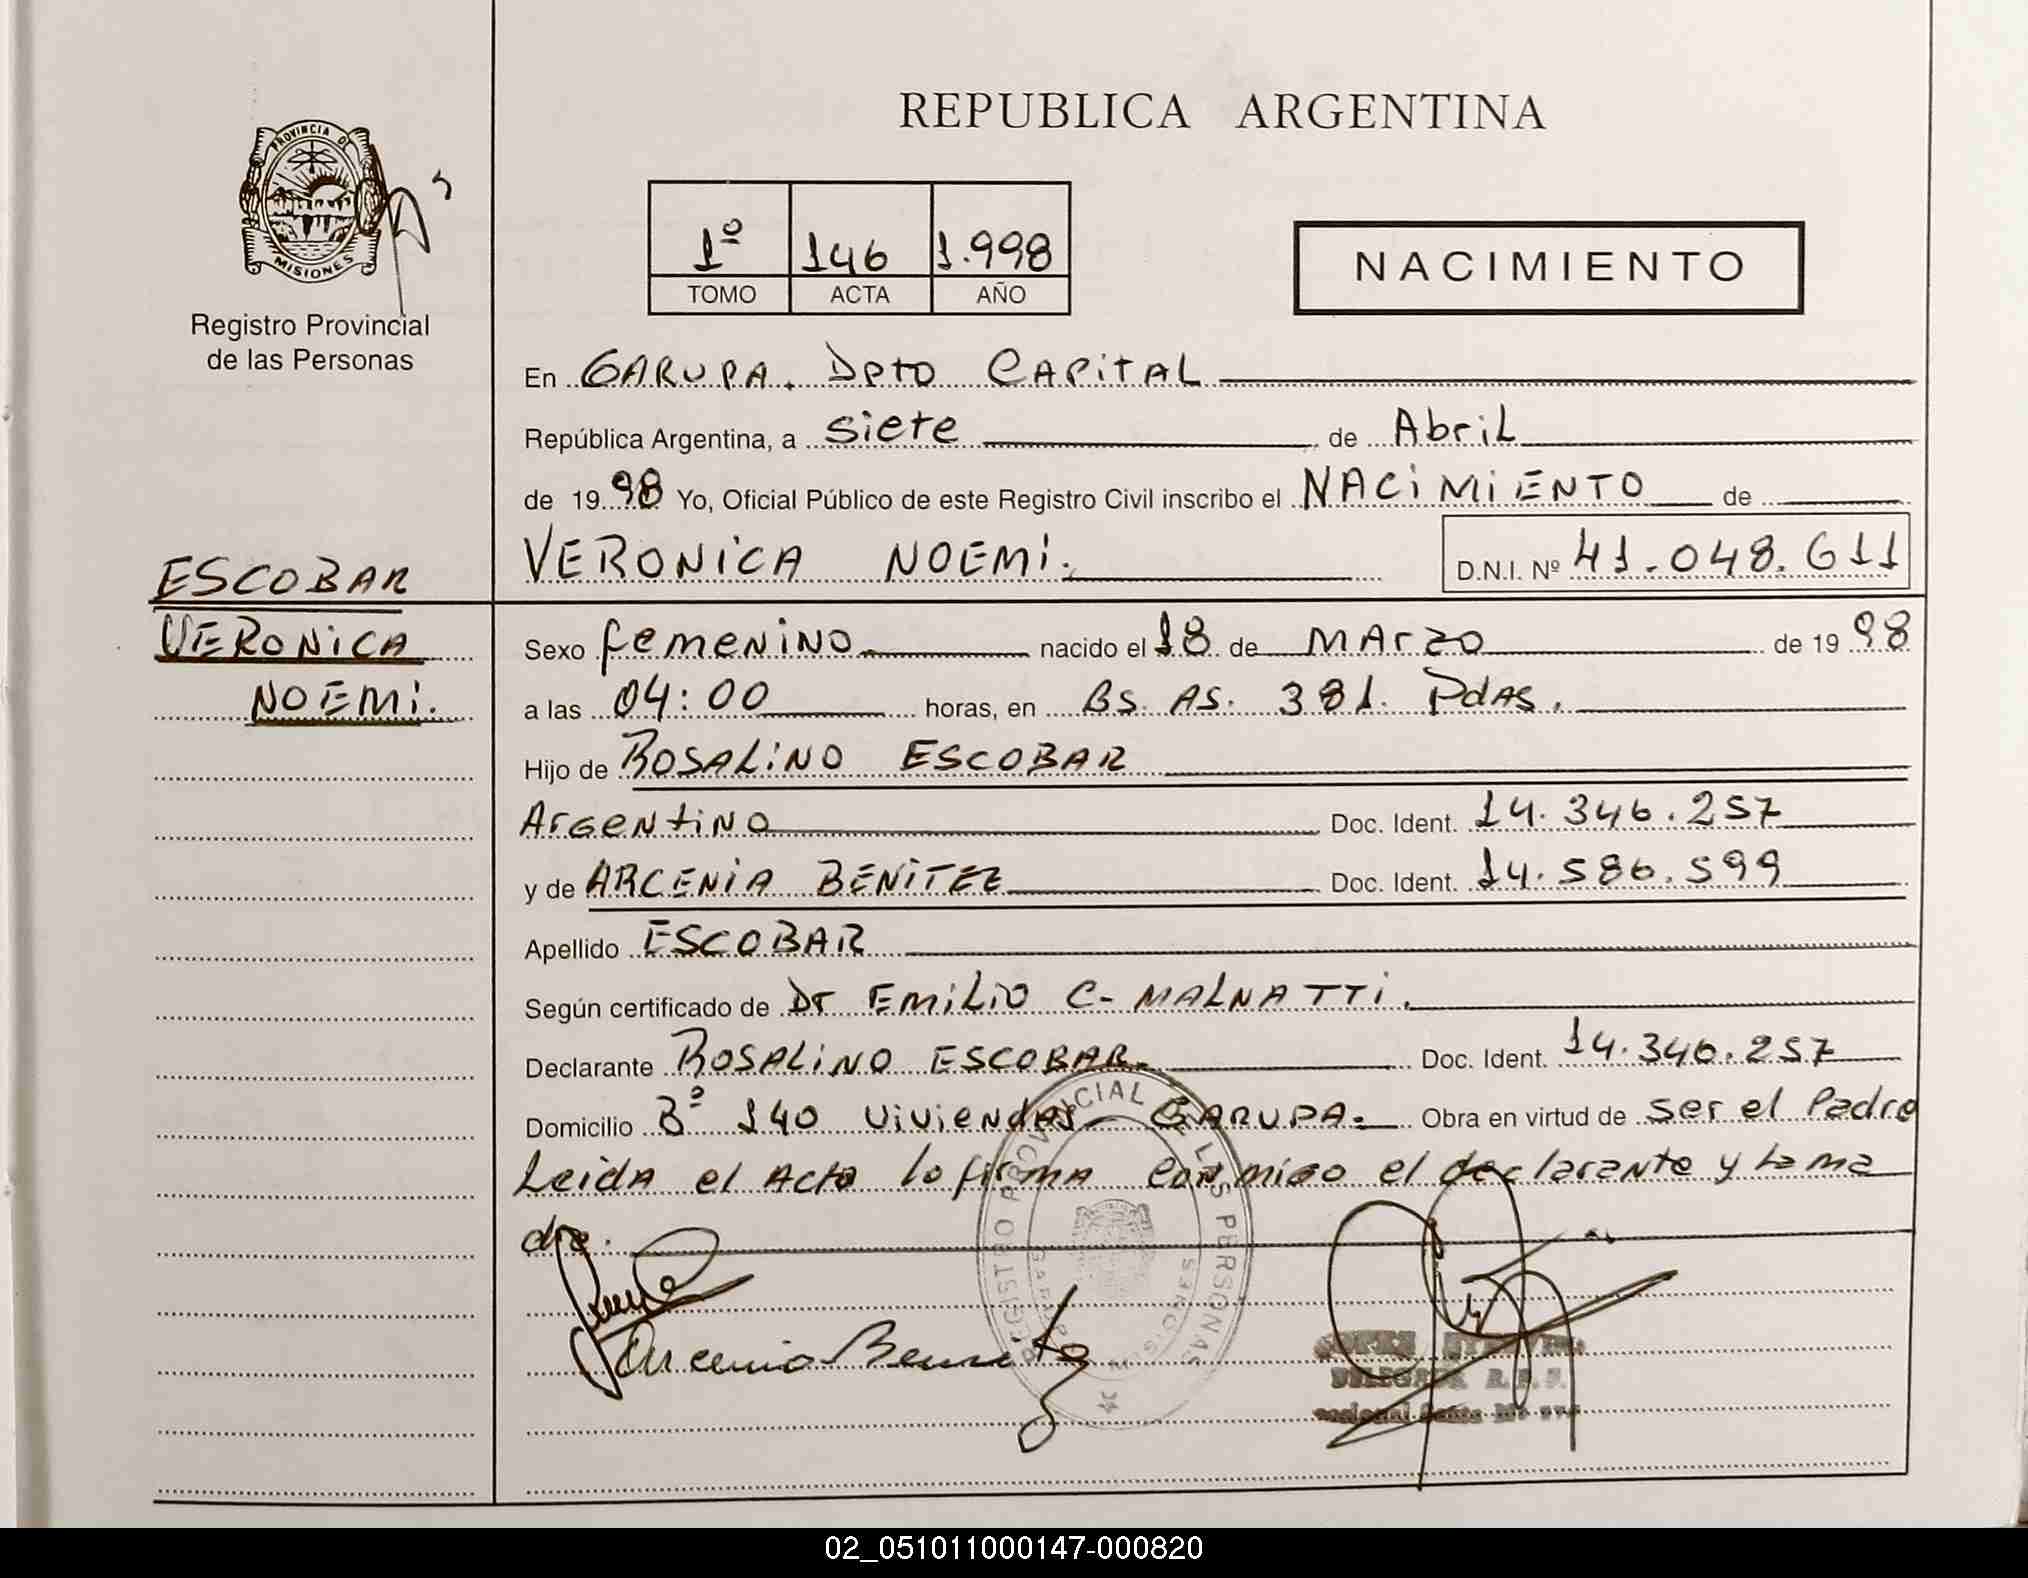 REPUBLICA ARGENTINA
PROVINCIA DE
MISIONES
Registro Provincial
de las Personas
1º 146 1.998
TOMO ACTA AÑO
NACIMIENTO
En GARUPA. Dpto CAPITAL
República Argentina, a siete de Abril
de 1998 Yo, Oficial Público de este Registro Civil inscribo el NACIMIENTO de
VERONICA NOEMI. D.N.I. Nº 41.048.611
ESCOBAR
VERONICA
NOEMI.
Sexo femenino nacido el 18 de MARZO de 1998
a las 04:00 horas, en Bs. As. 381. Pdas.
Hijo de ROSALINO ESCOBAR
Argentino Doc. Ident. 14.346.257
y de ARCENIA BENITEZ Doc. Ident. 14.586.599
Apellido ESCOBAR
Según certificado de Dr EMILIO C- MALNATTI.
Declarante ROSALINO ESCOBAR. Doc. Ident. 14.346.257
Domicilio Bº 140 viviendas GARUPA. Obra en virtud de ser el Padre
Leida el Acta lo firma conmigo el declarante y la ma
dre.
REGISTRO PROVINCIAL DE LAS PERSONAS
MISIONES
Arcenia Benitez
DELEGADA R.P.P.
02_051011000147-000820